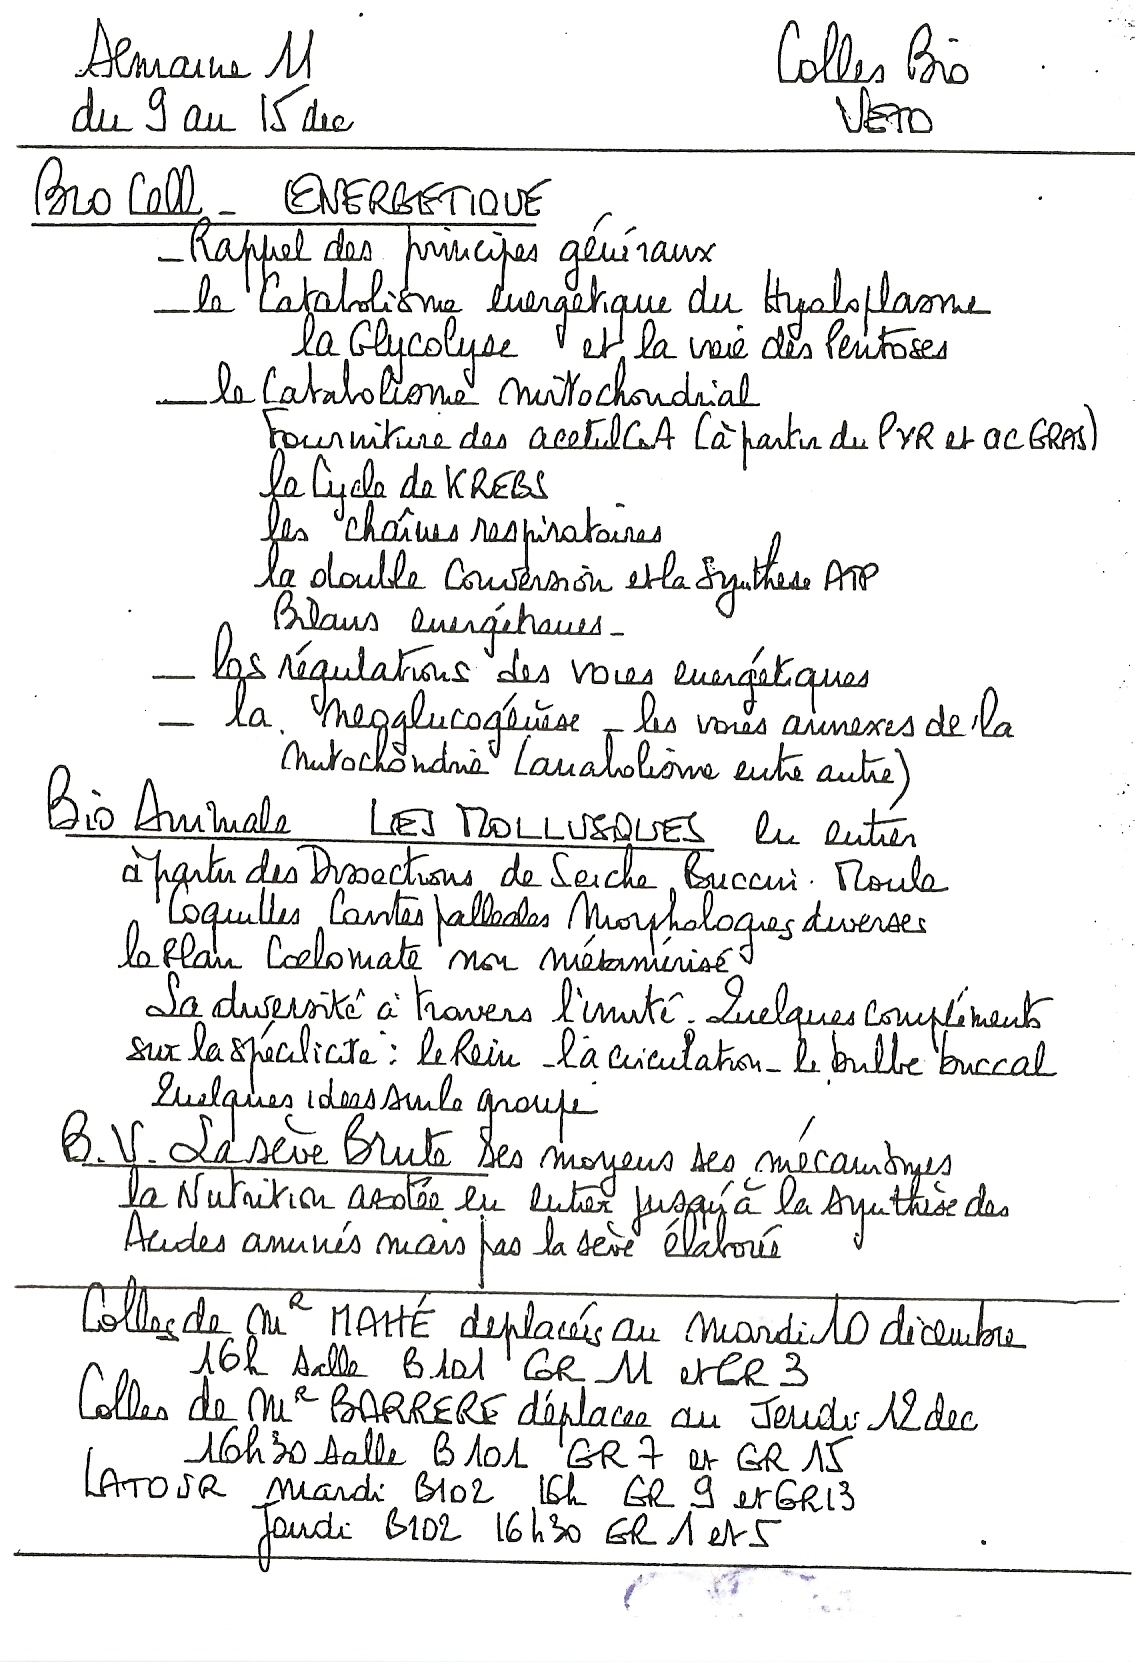 Semaine 11
du 9 au 15 dec
Colles Bio
VETO
Bio Cell - ENERGETIQUE
- Rappel des principes généraux
- le Catabolisme énergétique du Hyaloplasme
la Glycolyse et la voie des Pentoses
- le Catabolisme Mitochondrial
Fourniture des acetylCoA (à partir du PYR et ac GRAS)
le Cycle de KREBS
les chaînes respiratoires
la double Conversion et la Synthèse ATP
Bilans énergétiques -
- Les régulations des voies énergétiques
- la néoglucogénèse - les voies annexes de la
Mitochondrie (anabolisme entre autre)
Bio Animale LES MOLLUSQUES en entier
à partir des Dissections de Seiche, Buccin. Moule
Coquilles Cavités palléales Morphologies diverses
le Plan Coelomate non métamérisé
La diversité à travers l'unité - Quelques compléments
sur la spécificité : le Rein - la circulation - le bulbe buccal
Quelques idées sur le groupe
B.V. La sève Brute Ses moyens ses mécanismes
la Nutrition azotée en entier jusqu'à la synthèse des
Acides aminés mais pas la sève élaborée
Colles de Mr MAHÉ deplacées au mardi 10 décembre
16h salle B101 GR 11 et GR 3
Colles de Mr BARRERE déplacée au Jeudi 12 dec
16h30 salle B101 GR 7 et GR 15
LATOUR Mardi B102 16h GR 9 et GR13
Jeudi B102 16h30 GR 1 et 5